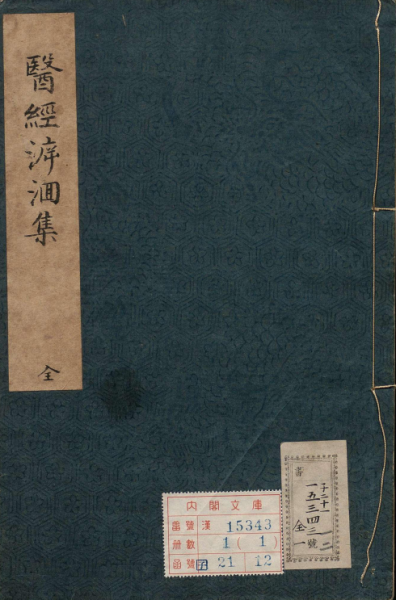 醫經泝洄集
全
內閣文庫
番號 漢 15343
冊數 1 ( 1 )
函號 子 21 12
書
子二十一
一二
一五三四三號
全一